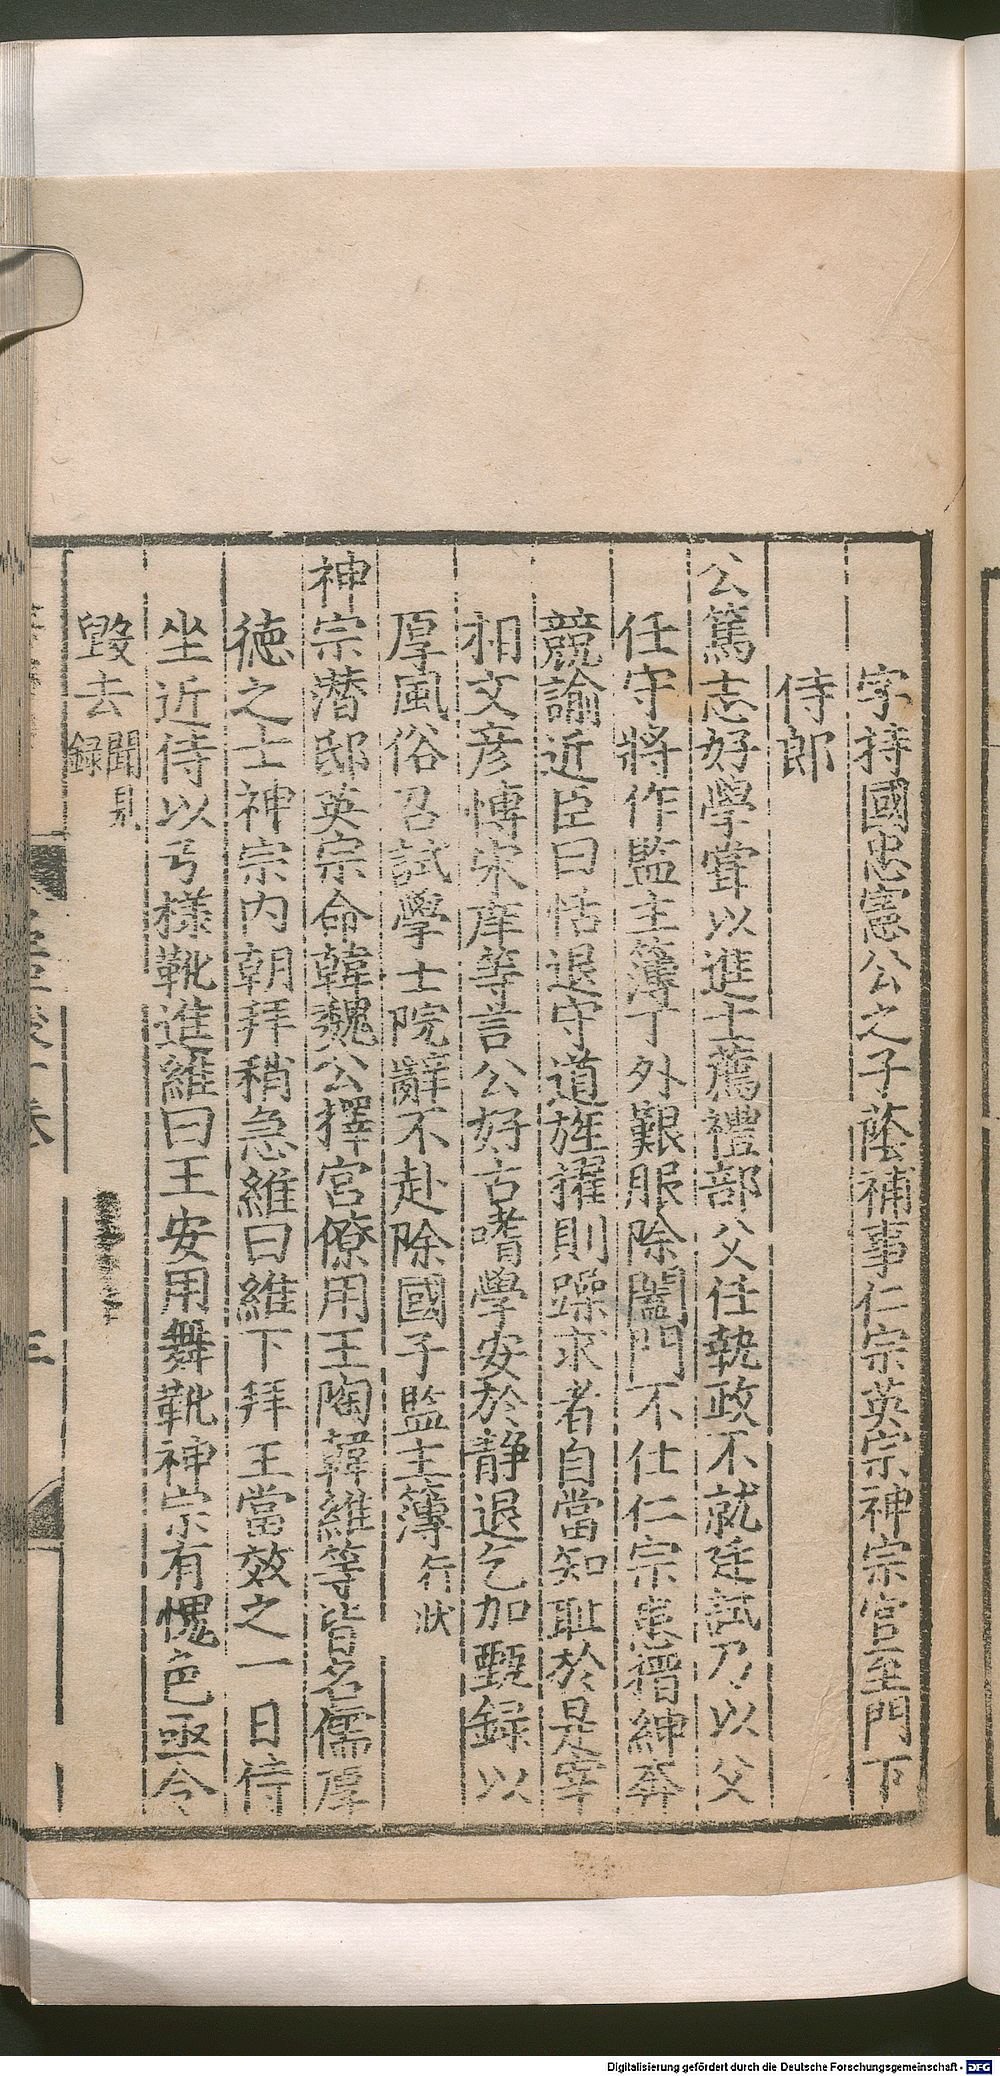 字持國忠憲公之子蔭補事仁宗英宗神宗官至門下
侍郎
公篤志好學嘗以進士薦禮部父任執政不就廷試乃以父
任守將作監主簿丁外艱服除闔門不仕仁宗患搢紳奔
競諭近臣曰恬退守道旌擢則躁求者自當知恥於是宰
相文彦博宋庠等言公好古嗜學安於静退乞加甄録以
厚風俗召試學士院辭不赴除國子監主簿行狀
神宗潜邸英宗命韓魏公擇宮僚用王陶韓維等皆名儒厚
徳之士神宗内朝拜稍急維曰維下拜王當效之一日侍
坐近侍以弓樣靴進維曰王安用舞靴神宗有愧色亟令
毀去聞見録
三
Digitalisierung gefördert durch die Deutsche Forschungsgemeinschaft - DFG